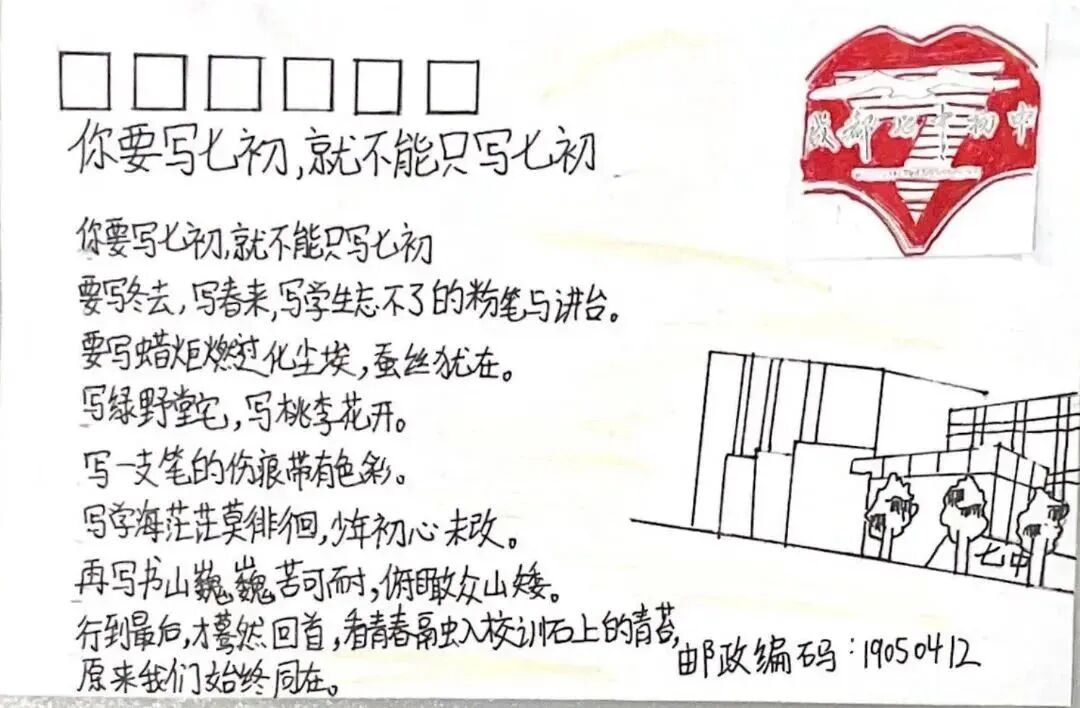 成都七中初中
你要写七初,就不能只写七初
你要写七初,就不能只写七初
要写冬去,写春来,写学生忘不了的粉笔与讲台。
要写蜡炬燃过化尘埃,蚕丝犹在。
写绿野堂宅,写桃李花开。
写一支笔的伤痕带有色彩。
写学海茫茫莫徘徊,少年初心未改。
再写书山巍巍苦可耐,俯瞰众山矮。
行到最后,才蓦然回首,看青春融入校训石上的青苔,
原来我们始终同在。
七中
邮政编码:19050412